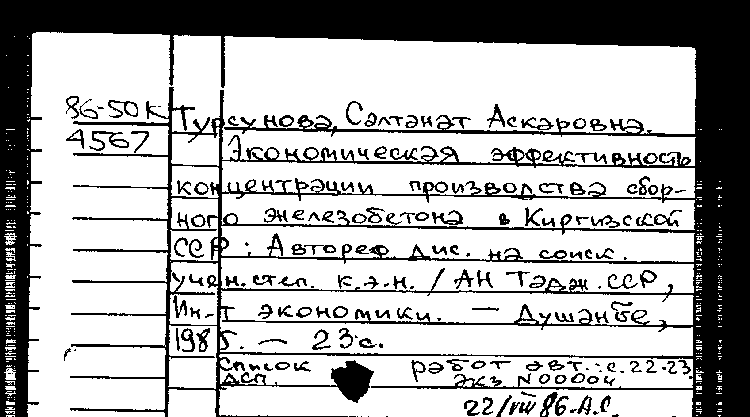 86-50К
4567
Турсунова, Салтанат Аскаровна.
Экономическая эффективность
концентрации производства сбор-
ного железобетона в Киргизской
ССР : Автореф. дис. на соиск.
учен. степ. к.э.н. / АН Тадж. ССР,
Ин-т экономики. — Душанбе,
1985. — 23 с.
Список работ авт.: с. 22-23.
ДСП. Экз. N00004
22/VII 86. А.С.